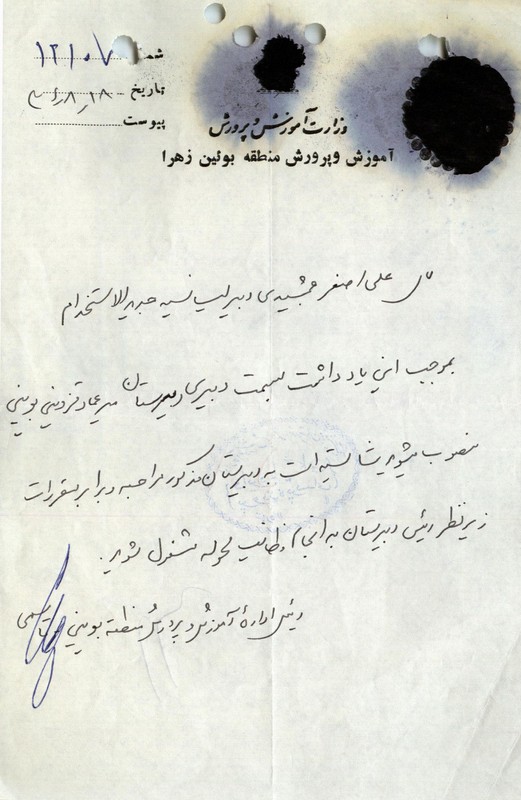 شماره ۱۲۱۰۷
تاریخ ۱۸ر۸ر۳۴
پیوست
وزارت آموزش و پرورش
آموزش و پرورش منطقه بوئین زهرا
علی اصغر جمشیدی دبیر لیسانسیه جدیدالاستخدام
بموجب این یادداشت بسمت دبیری دبیرستان میرعماد قزوینی بوئین
منصوب میشوید شایسته است به دبیرستان مذکور مراجعه و برابر مقررات
زیر نظر رئیس دبیرستان به انجام وظائف محوله مشغول شوید.
رئیس اداره آموزش و پرورش منطقه بوئین